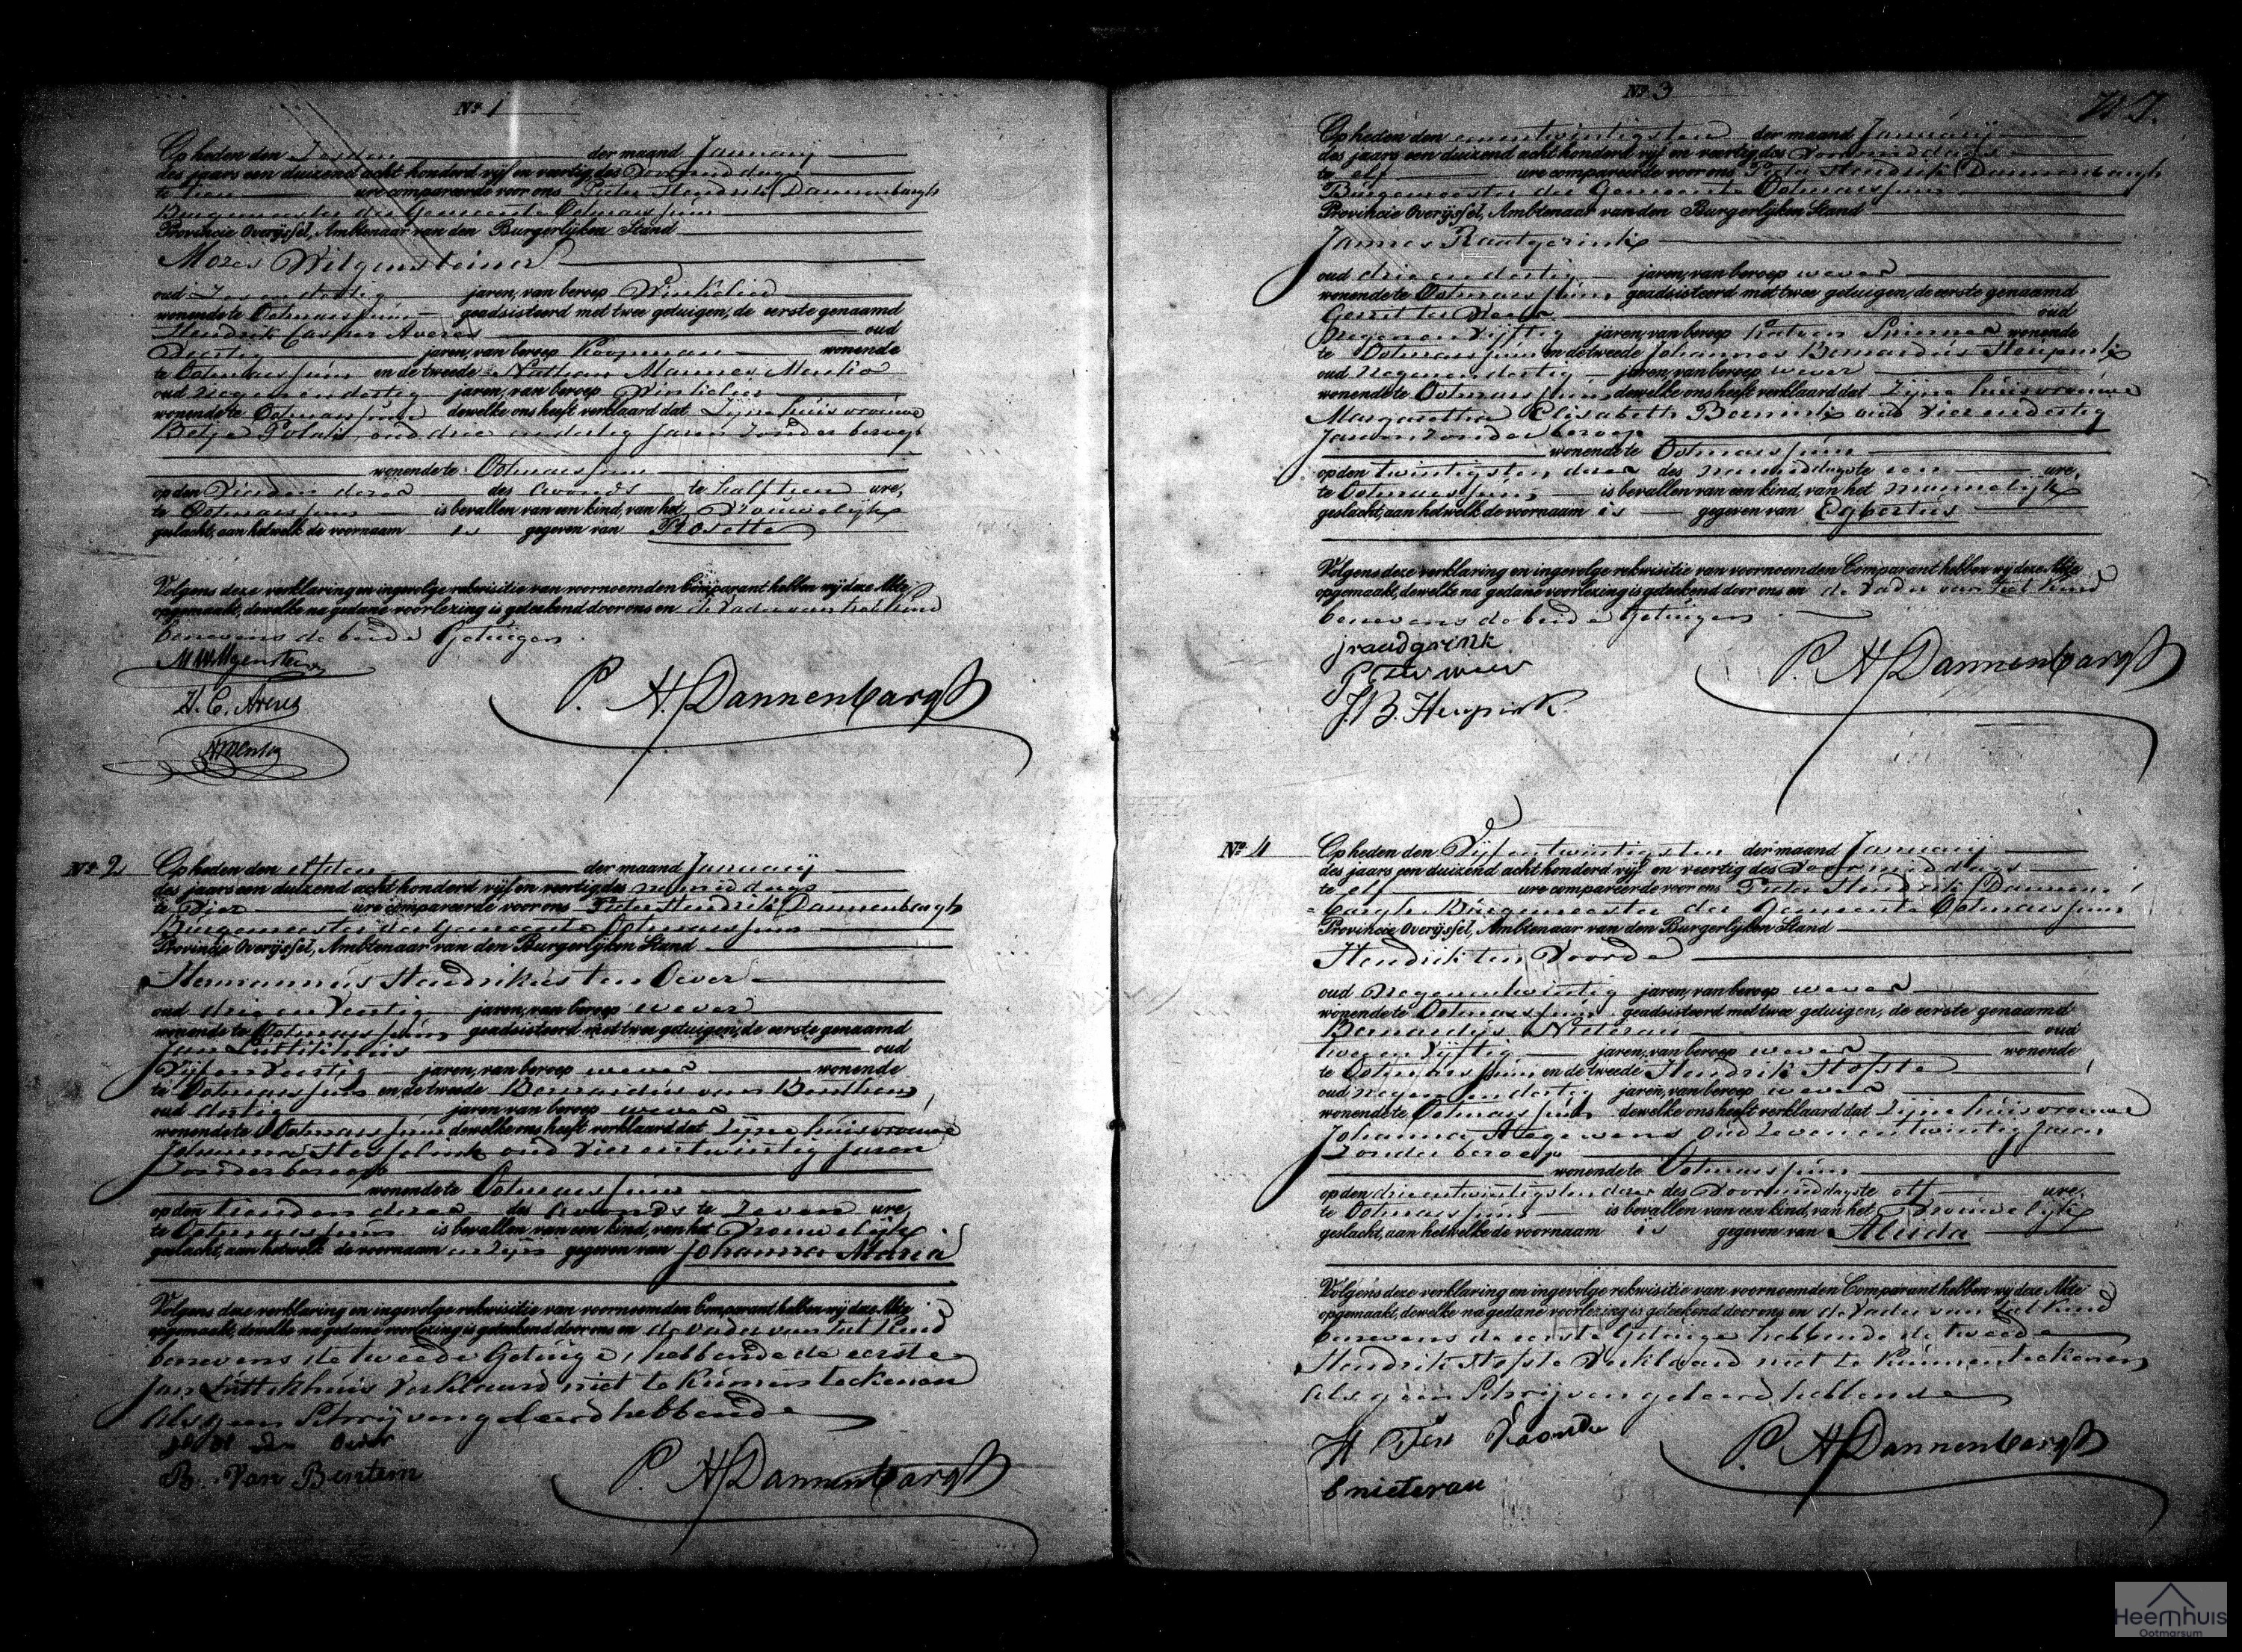 No. 1
Op heden den Zesden der maand Januarij
des jaars een duizend acht honderd vijf en veertig des Voormiddags
te tien ure compareerde voor ons Pieter Hendrik Dannenbargh
Burgemeester der Gemeente Ootmarssum
Provincie Overijssel, Ambtenaar van den Burgerlijken Stand
Mozes Wilgensteiner
oud Zes en dertig jaren, van beroep Winkelier
wonende te Ootmarssum geadsisteerd met twee getuigen, de eerste genaamd
Hendrik Casper Averes oud
Dertig jaren, van beroep Koopman wonende
te Ootmarssum en de tweede Nathan Mannes Menko
oud Negen en dertig jaren, van beroep Winkelier
wonende te Ootmarssum dewelke ons heeft verklaard dat Zijne huisvrouwe
Betje Polak oud drie en dertig Jaren Zonder beroep
wonende te Ootmarssum
op den Vierden dezer des Avonds te half tien ure,
te Ootmarssum is bevallen van een kind, van het Vrouwelijke
geslacht, aan hetwelk de voornaam is gegeven van Rosette
Volgens deze verklaring en ingevolge rekwisitie van voornoemden Comparant hebben wij deze Akte
opgemaakt, dewelke na gedane voorlezing is geteekend door ons en de Vader van het Kind
benevens de beide Getuigen
P. H. Dannenbargh
No. 2
Op heden den elfden der maand Januarij
des jaars een duizend acht honderd vijf en veertig des namiddags
te Vier ure compareerde voor ons Pieter Hendrik Dannenbargh
Burgemeester der Gemeente Ootmarssum
Provincie Overijssel, Ambtenaar van den Burgerlijken Stand
Hermannus Hendrikus ten Oever
oud drie en jaren, van beroep wever
wonende te Ootmarssum geadsisteerd met twee getuigen, de eerste genaamd
Jan Luttikhuis oud
Vijf en Veertig jaren, van beroep wever wonende
te Ootmarssum en de tweede Bernardus van Benthem
oud dertig jaren, van beroep wever
wonende te Ootmarssum dewelke ons heeft verklaard dat Zijne huisvrouwe
Johanna oud Vier en twintig Jaren
Zonder beroep
wonende te Ootmarssum
op den tienden dezer des Avonds te Zeven ure,
te Ootmarssum is bevallen van een kind, van het Vrouwelijke
geslacht, aan hetwelk de voornaamen zijn gegeven van Johanna Maria
Volgens deze verklaring en ingevolge rekwisitie van voornoemden Comparant hebben wij deze Akte
opgemaakt, dewelke na gedane voorlezing is geteekend door ons en de Vader van het Kind
benevens de tweede Getuige, hebbende de eerste
Jan Luttikhuis Verklaard niet te Kunnen teekenen
als geen Schrijven geleerd hebbende
B. Van Bentem
P. H. Dannenbargh
No. 3
Op heden den eenentwintigsten der maand Januarij
des jaars een duizend acht honderd vijf en veertig des Voormiddags
te elf ure compareerde voor ons Pieter Hendrik Dannenbargh
Burgemeester der Gemeente Ootmarssum
Provincie Overijssel, Ambtenaar van den Burgerlijken Stand
Jannes Raatgerink
oud drie en dertig jaren, van beroep wever
wonende te Ootmarssum geadsisteerd met twee getuigen, de eerste genaamd
Gerrit ter oud
Negen en Vijftig jaren, van beroep Katoen Spinner wonende
te Ootmarssum en de tweede Johannes Bernardus Heupink
oud Negen en dertig jaren, van beroep wever
wonende te Ootmarssum dewelke ons heeft verklaard dat Zijne huisvrouwe
Margaretha Elisabeth oud Vier en dertig
Jaren Zonder beroep
wonende te Ootmarssum
op den twintigsten dezer des namiddags te een ure,
te Ootmarssum is bevallen van een kind, van het mannelijke
geslacht, aan hetwelk de voornaam is gegeven van Egbertus
Volgens deze verklaring en ingevolge rekwisitie van voornoemden Comparant hebben wij deze Akte
opgemaakt, dewelke na gedane voorlezing is geteekend door ons en de Vader van het Kind
benevens de beide Getuigen
J. B. Heupink
P. H. Dannenbargh
No. 4
Op heden den Vijfentwintigsten der maand Januarij
des jaars een duizend acht honderd vijf en veertig des Voormiddags
te elf ure compareerde voor ons Pieter Hendrik Dannen
bargh Burgemeester der Gemeente Ootmarssum
Provincie Overijssel, Ambtenaar van den Burgerlijken Stand
Hendrik ten Voorde
oud Negenentwintig jaren, van beroep wever
wonende te Ootmarssum geadsisteerd met twee getuigen, de eerste genaamd
Bernardus Nieterau oud
twee en Vijftig jaren, van beroep wever wonende
te Ootmarssum en de tweede Hendrik Hofste
oud negen en dertig jaren, van beroep wever
wonende te Ootmarssum dewelke ons heeft verklaard dat Zijne huisvrouwe
Johanna oud Zeven en twintig Jaren
Zonder beroep
wonende te Ootmarssum
op den drieentwintigsten dezer des Voormiddags te elf ure,
te Ootmarssum is bevallen van een kind, van het Vrouwelijke
geslacht, aan hetwelk de voornaam is gegeven van Alida
Volgens deze verklaring en ingevolge rekwisitie van voornoemden Comparant hebben wij deze Akte
opgemaakt, dewelke na gedane voorlezing is geteekend door ons en de Vader van het Kind
benevens de eerste Getuige hebbende de tweede
Hendrik Hofste Verklaard niet te Kunnen teekenen
als geen Schrijven geleerd hebbende
H Ten Voorde
b nieterau
P. H. Dannenbargh
Heemhuis
Ootmarsum